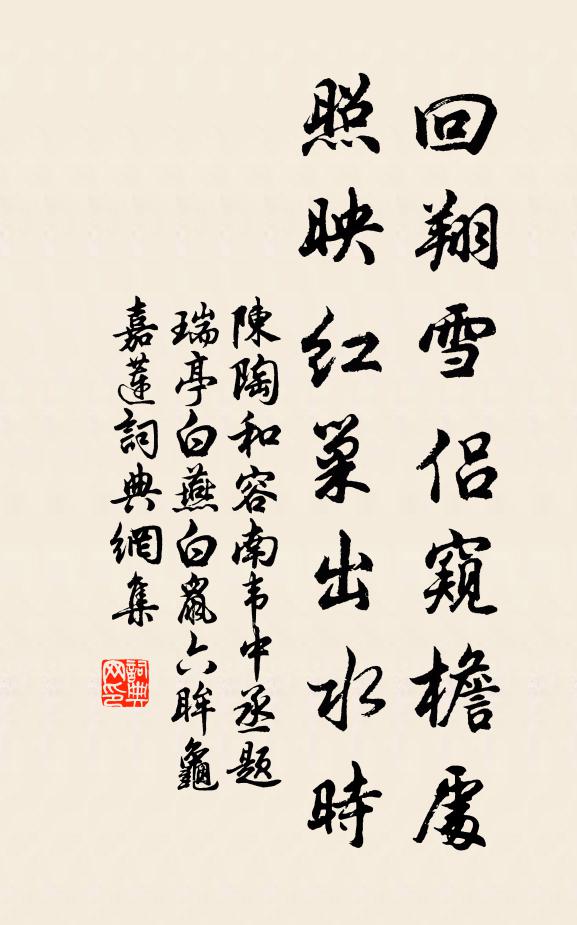 回翔雪侶窺檐處
照映紅巢出水時
陳陶和容南韦中丞题
瑞亭白燕白鼠六眸龜
嘉蓮詞典網集
詞典网印